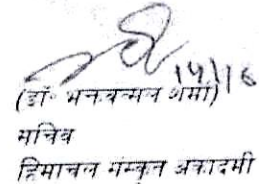 (डॉ॰ भक्तवत्सल शर्मा)
सचिव
हिमाचल संस्कृत अकादमी